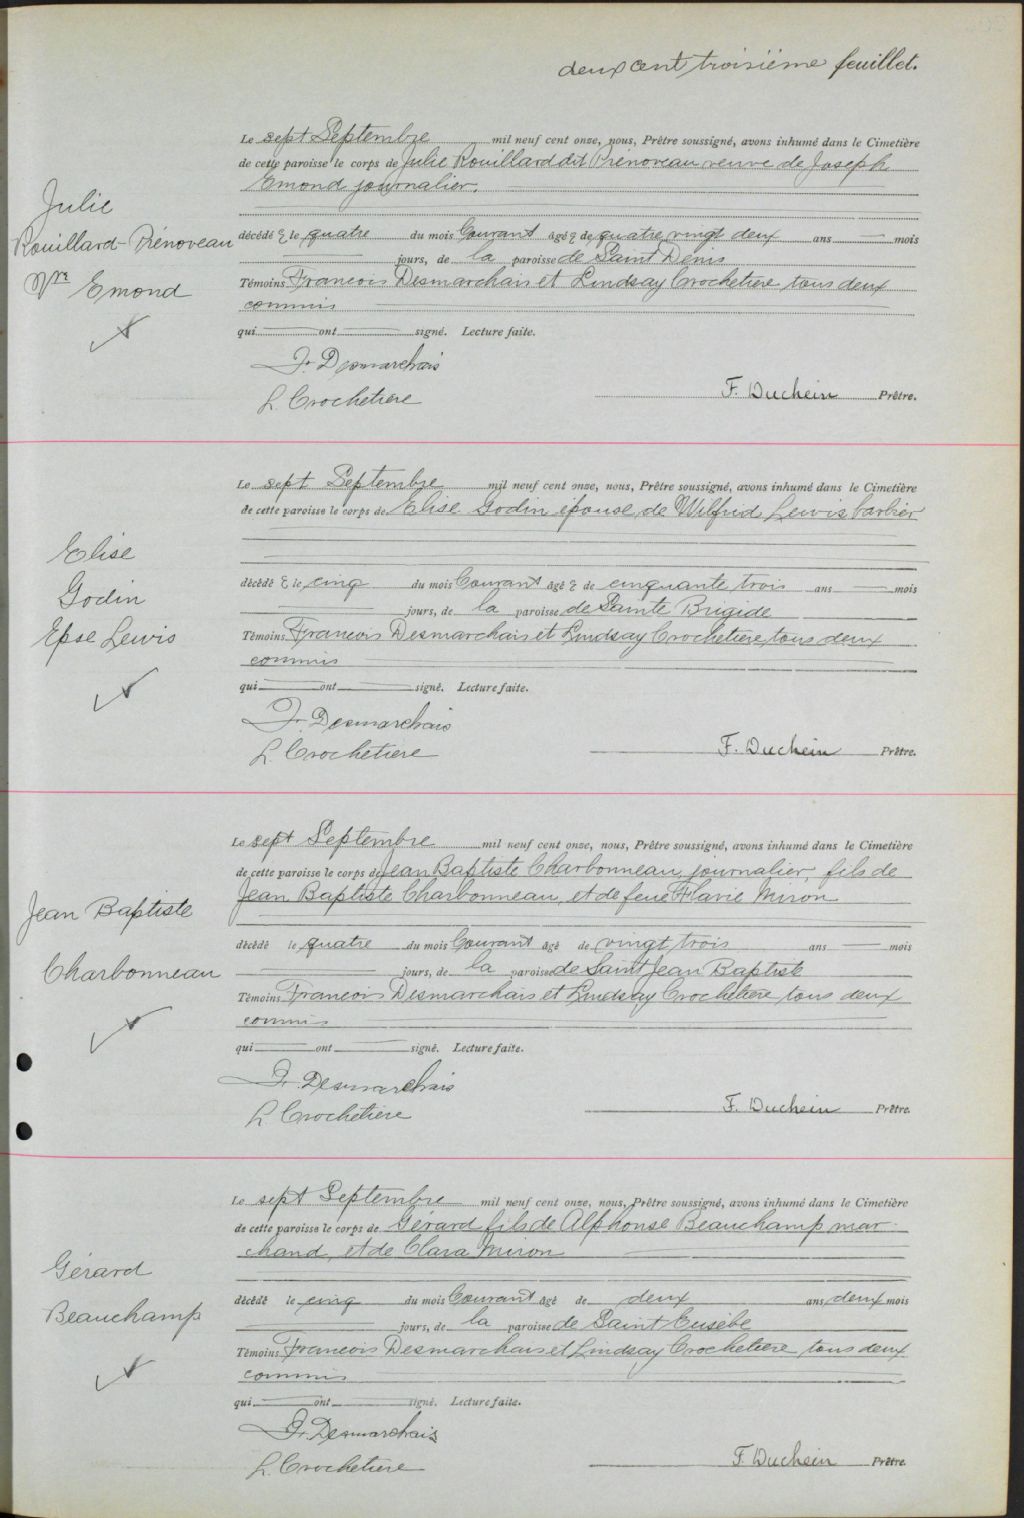 deux cent troisième feuillet.
Julie
Rouillard-Prénoveau
Vve Emond
Le sept Septembre mil neuf cent onze, nous, Prêtre soussigné, avons inhumé dans le Cimetière
de cette paroisse le corps de Julie Rouillard dit Prenoveau veuve de Joseph
Emond journalier.
décédé e le quatre du mois Courant âgé e de quatre vingt deux ans — mois
jours, de la paroisse de Saint Denis
Témoins Francois Desmarchais et Lindsay Crochetiere tous deux
commis
qui ont signé. Lecture faite.
Fr. Desmarchais
L. Crochetiere
F. Duchein Prêtre.
Elise
Godin
Epse Lewis
Le sept Septembre mil neuf cent onze, nous, Prêtre soussigné, avons inhumé dans le Cimetière
de cette paroisse le corps de Elise Godin épouse de Wilfrid Lewis barbier
décédé e le cinq du mois Courant âgé e de cinquante trois ans — mois
jours, de la paroisse de Sainte Brigide
Témoins Francois Desmarchais et Lindsay Crochetiere tous deux
commis
qui ont signé. Lecture faite.
Fr. Desmarchais
L. Crochetiere
F. Duchein Prêtre.
Jean Baptiste
Charbonneau
Le sept Septembre mil neuf cent onze, nous, Prêtre soussigné, avons inhumé dans le Cimetière
de cette paroisse le corps de Jean Baptiste Charbonneau, journalier, fils de
Jean Baptiste Charbonneau, et de feue Flavie Miron
décédé le quatre du mois Courant âgé de vingt trois ans — mois
jours, de la paroisse de Saint Jean Baptiste
Témoins Francois Desmarchais et Lindsay Crochetiere tous deux
commis
qui ont signé. Lecture faite.
Fr. Desmarchais
L. Crochetiere
F. Duchein Prêtre.
Gérard
Beauchamp
Le sept Septembre mil neuf cent onze, nous, Prêtre soussigné, avons inhumé dans le Cimetière
de cette paroisse le corps de Gérard fils de Alphonse Beauchamp mar-
chand, et de Clara Miron
décédé le cinq du mois Courant âgé de deux ans deux mois
jours, de la paroisse de Saint Eusèbe
Témoins Francois Desmarchais et Lindsay Crochetiere tous deux
commis
qui ont signé. Lecture faite.
Fr. Desmarchais
L. Crochetiere
F. Duchein Prêtre.